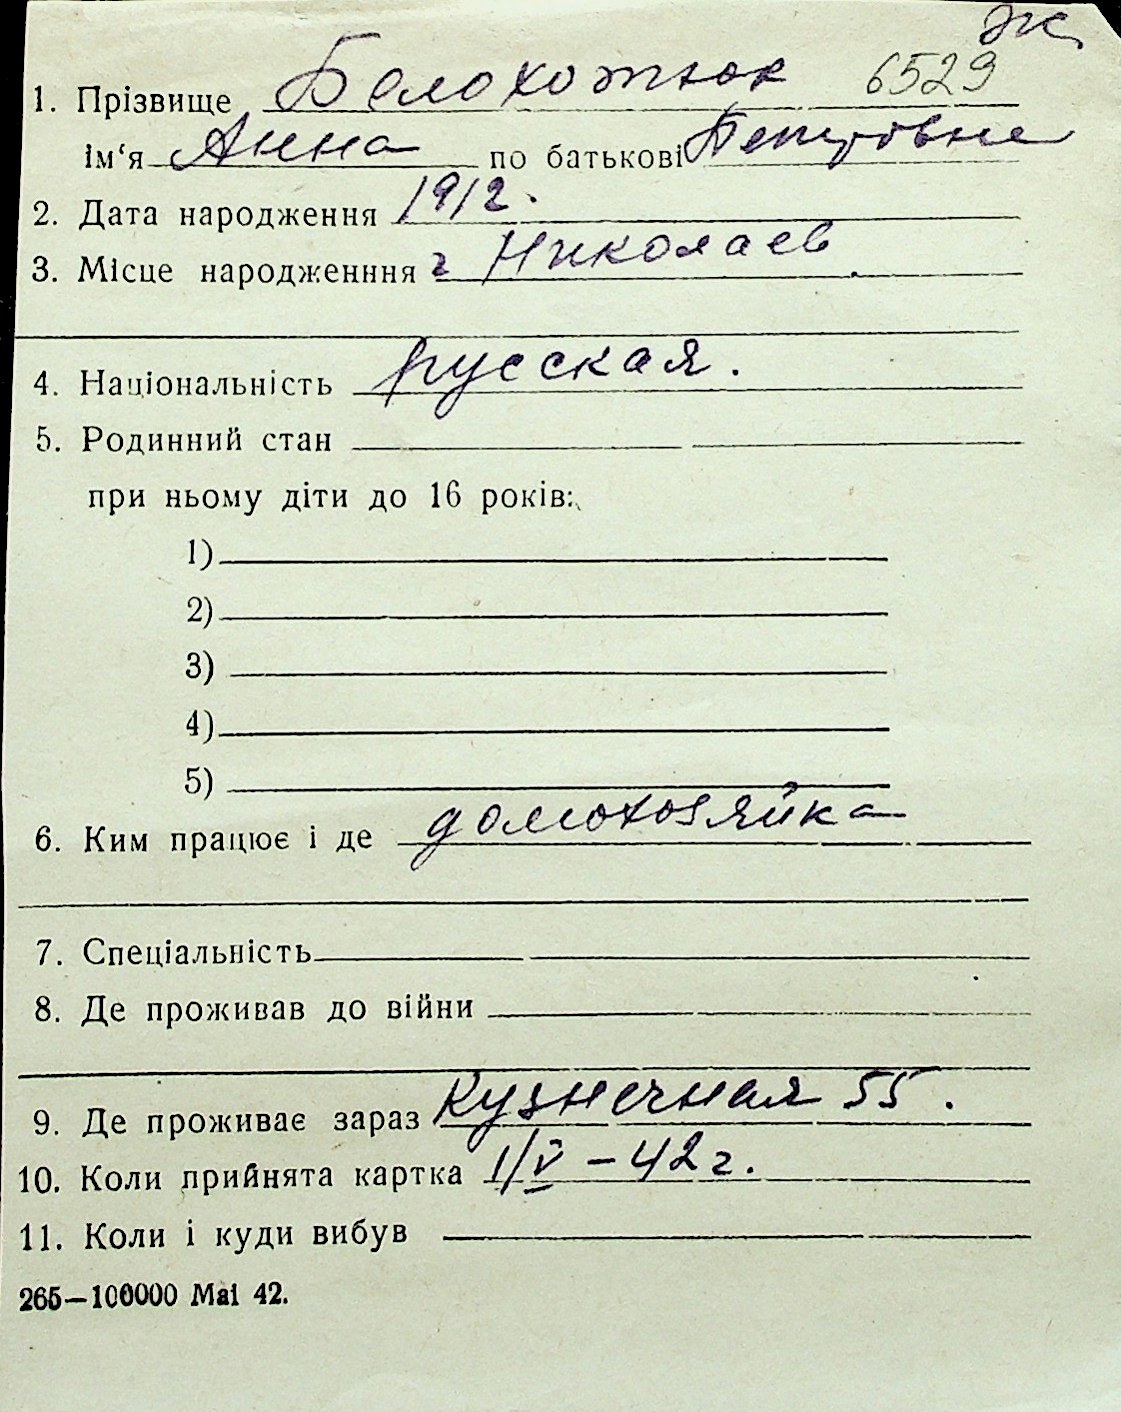 Ж
1. Прізвище Белохотнюк 6529
Ім‘я Анна по батькові Петровна
2. Дата народження 1912.
3. Місце народженння г Николаев
4. Національність русская.
5. Родинний стан
при ньому діти до 16 років:
1)
2)
3)
4)
5)
6. Ким працює і де домохозяйка
7. Спеціальність
8. Де проживав до війни
9. Де проживає зараз Кузнечная 55.
10. Коли прийнята картка 1/V – 42 г.
11. Коли і куди вибув
265—100000 Mai 42.